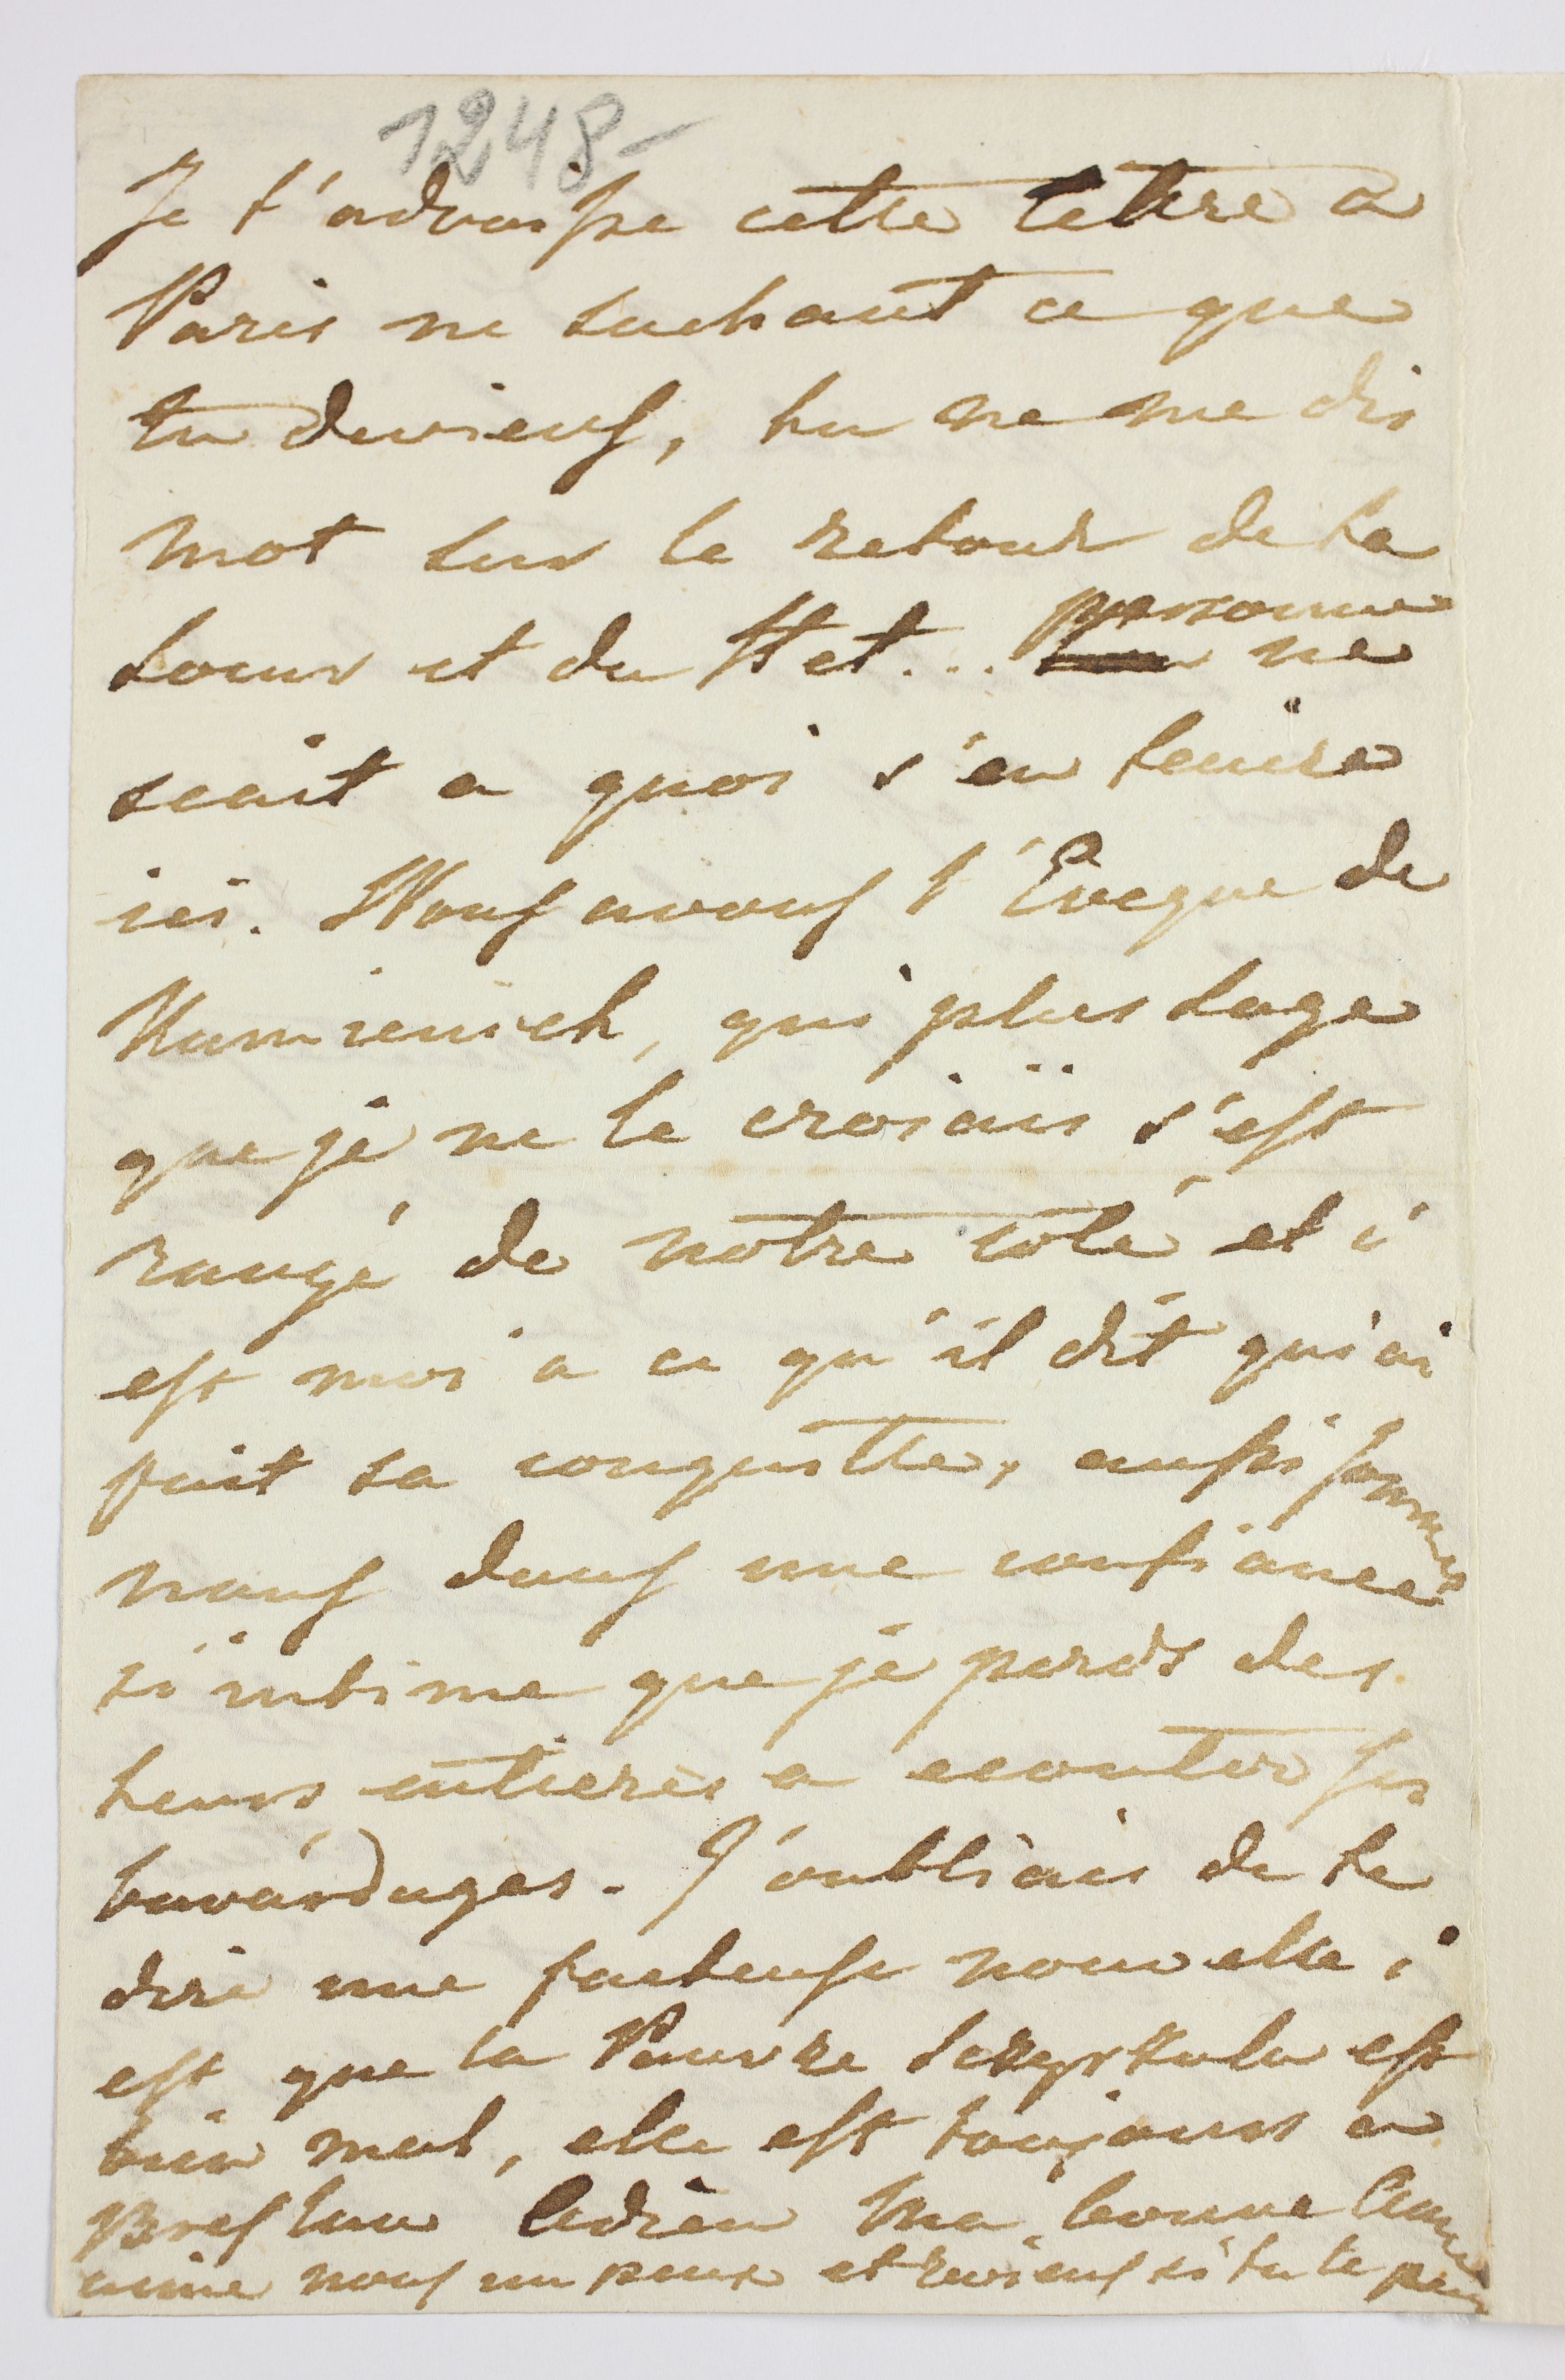 1248-
Je t'adraisse cette lettre a
Paris ne sachant ce que
tu deviens, tu ne me dis
mot sur le retour de ta
soeur et du Het... personne
ne
scait a quoi s'en tenire
ici. Nous avons l'Eveque de
Kamieniek, qui plus sage
que je ne le croiais s'est
rangé de notre coté et c'
est moi a ce qu'il dit qui ai
fait sa conquette, aussi sommes
nous dans une confiance
si intime que je perds des
heurs entieres a ecouter ses
bavardages. J'oubliais de te
dire une facheuse nouvelle c'
est que la Pauvre est
bien mal, elle est toujours a
Breslau Adieu Ma bonne Amie
aime nous un peux et reviens si tu le peux